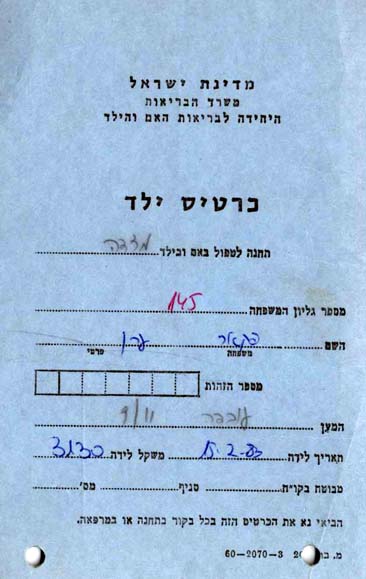 מדינת ישראל
משרד הבריאות
היחידה לבריאות האם והילד
כרטיס ילד
תחנה לטפול באם ובילד מצדה
מספר גליון המשפחה 145
השם ערן
משפחה פרטי
מספר הזהות
המען 9/11
תאריך לידה 15.2.83 משקל לידה 3130
מבוטח בקו"ח סניף מס'
הביאי נא את הכרטיס הזה בכל בקור בתחנה או במרפאה.
60-2070-3